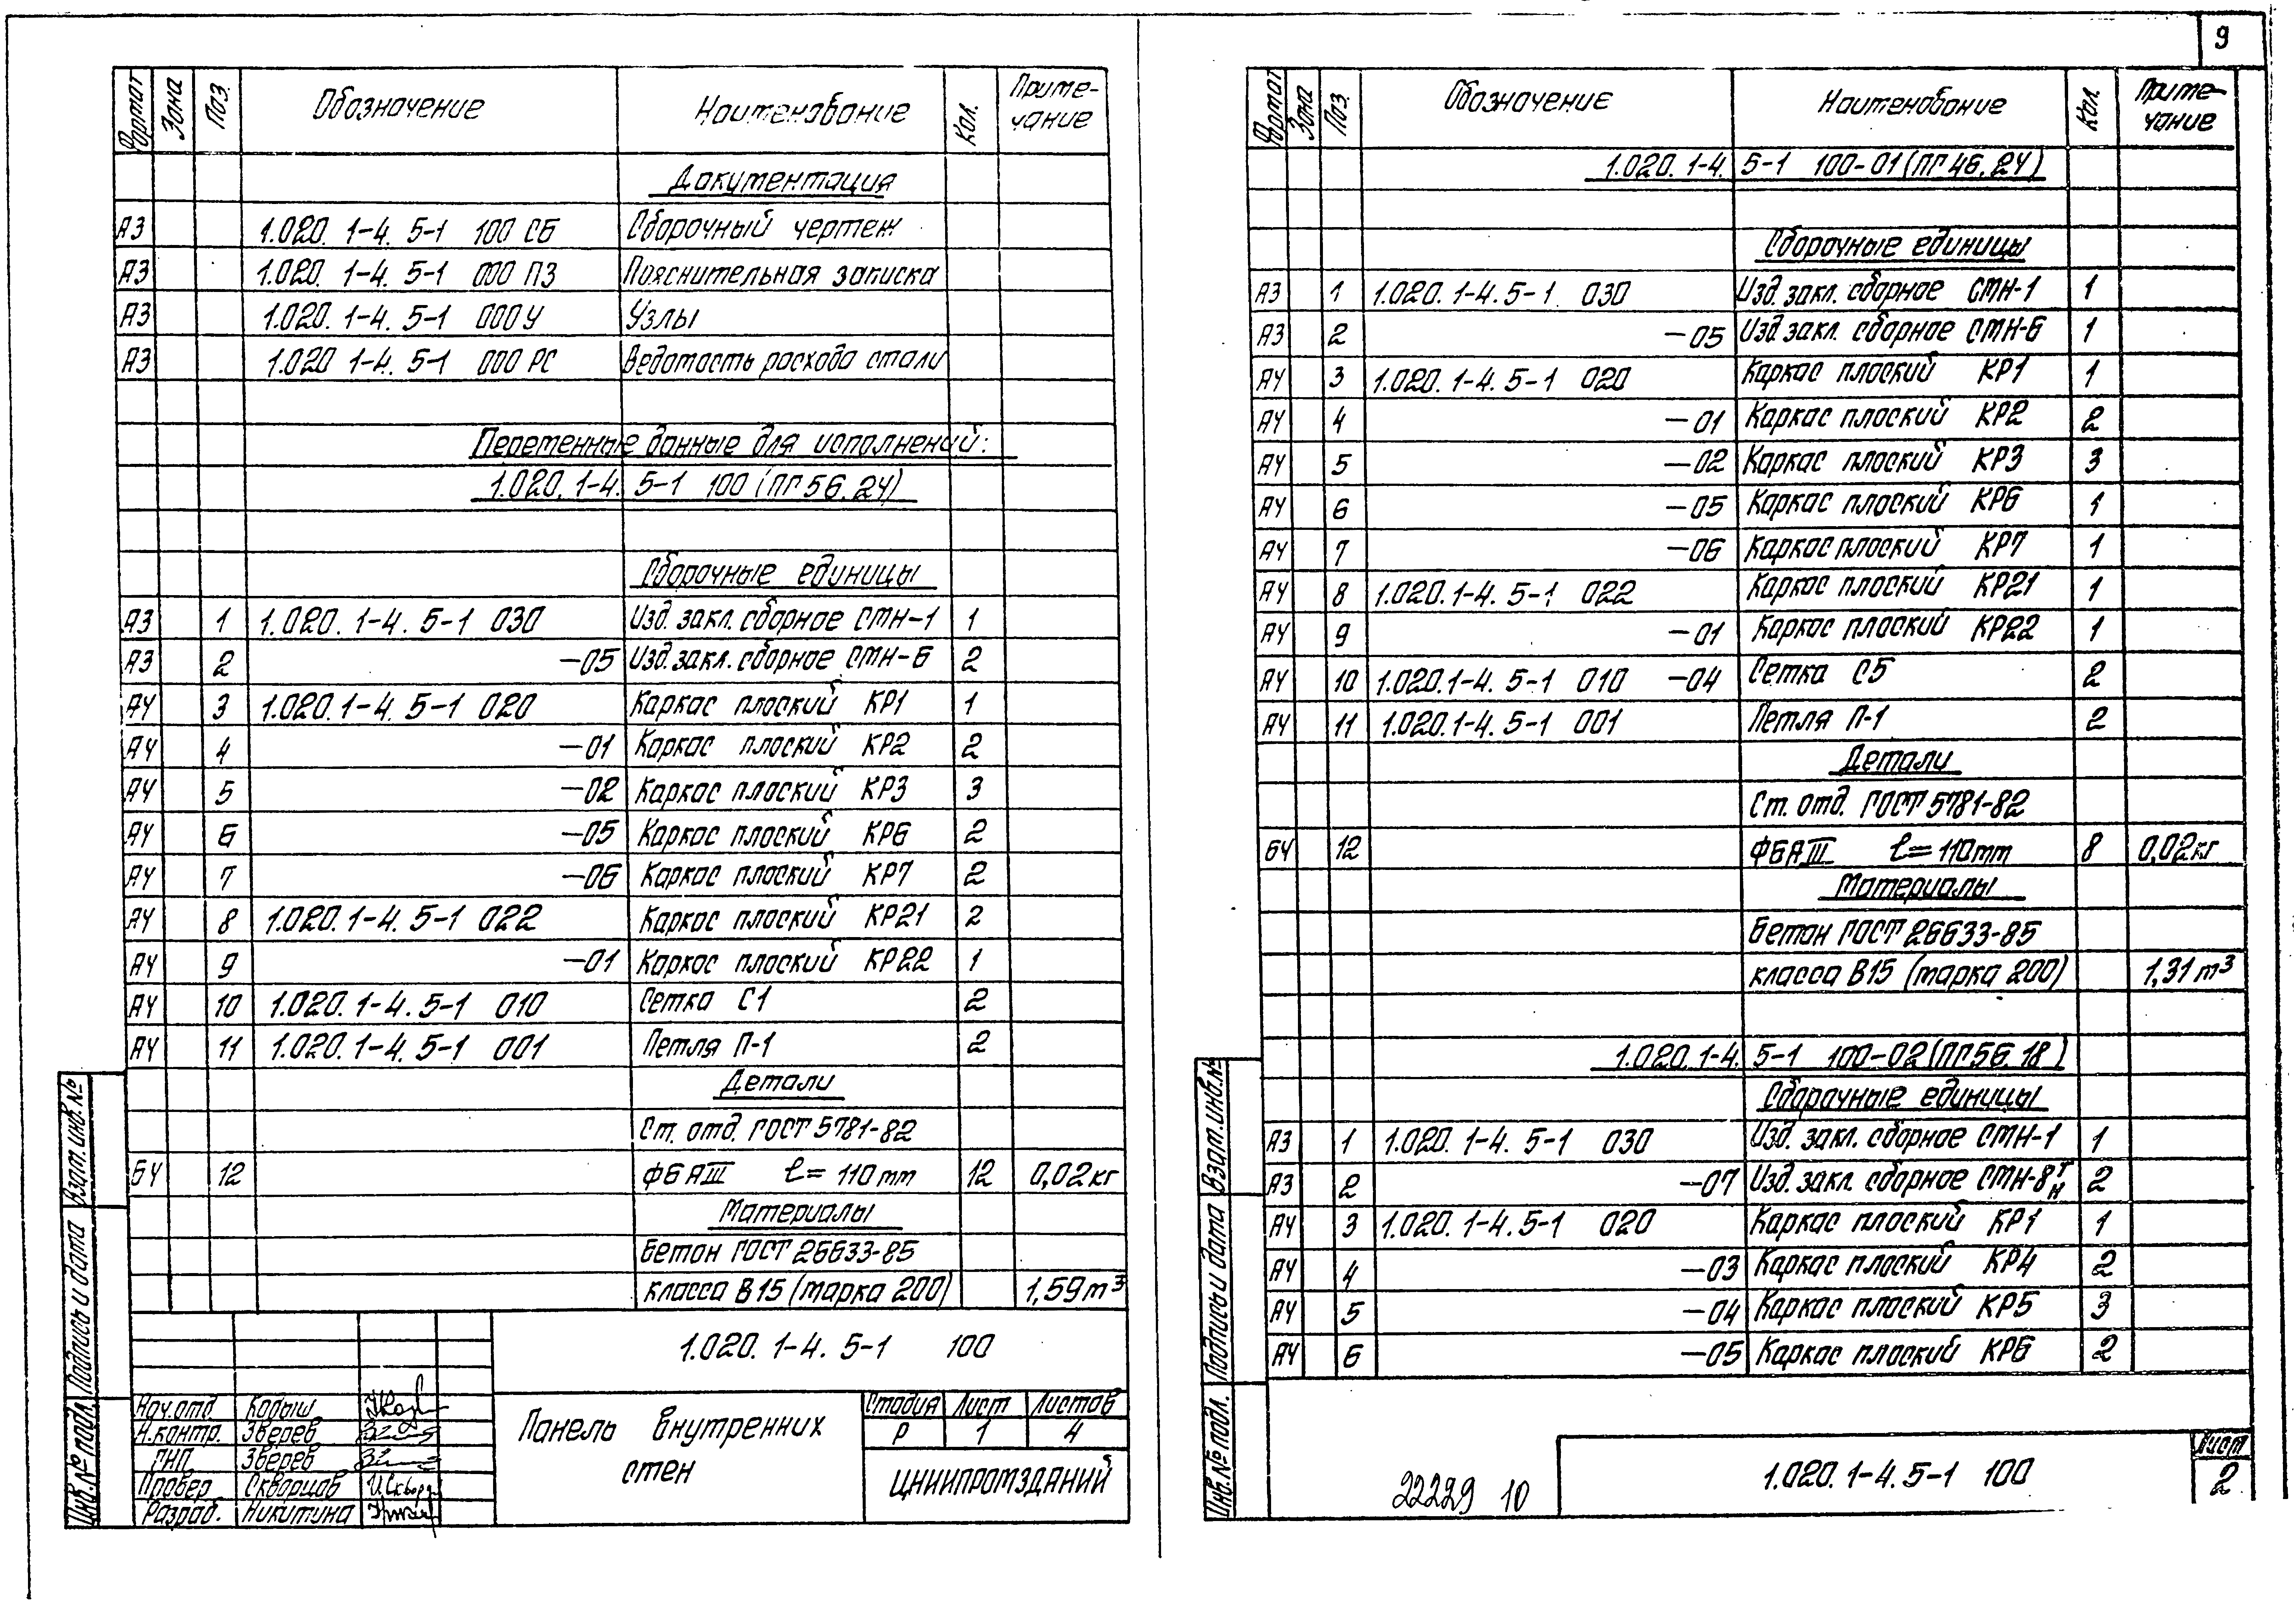 Формат Зона Поз. Обозначение Наименование Кол. Примечание
Документация
А3 1.020.1-4.5-1 100 СБ Сборочный чертеж
А3 1.020.1-4.5-1 000 ПЗ Пояснительная записка
А3 1.020.1-4.5-1 000У Узлы
А3 1.020 1-4.5-1 000 РС Ведомость расхода стали
Переменные данные для исполнений:
1.020.1-4.5-1 100 (ПГ56.24)
Сборочные единицы
А3 1 1.020.1-4.5-1 030 Изд. закл. сборное СМН-1 1
А3 2 -05 Изд. закл. сборное СМН-6 2
А4 3 1.020.1-4.5-1 020 Каркас плоский КР1 1
А4 4 -01 Каркас плоский КР2 2
А4 5 -02 Каркас плоский КР3 3
А4 6 -05 Каркас плоский КР6 2
А4 7 -06 Каркас плоский КР7 2
А4 8 1.020.1-4.5-1 022 Каркас плоский КР21 2
А4 9 -01 Каркас плоский КР22 1
А4 10 1.020.1-4.5-1 010 Сетка С1 2
А4 11 1.020.1-4.5-1 001 Петля П-1 2
Детали
Ст. отд. ГОСТ 5781-82
БЧ 12 Ф6АIII ℓ=110мм 12 0,02кг
Материалы
Бетон ГОСТ 26633-85
класса В15 (марка 200) 1,59м³
1.020.1-4.5-1 100
Нач.отд. Кодыш
Н.контр. Зверев
ГИП Зверев
Провер. Скворцов
Разраб. Никитина
Панель внутренних
стен
Стадия Лист Листов
Р 1 4
ЦНИИПРОМЗДАНИЙ
Инв.№ подл. Подпись и дата Взам.инв.№
9
Формат Зона Поз. Обозначение Наименование Кол. Примечание
1.020.1-4.5-1 100-01 (ПГ46.24)
Сборочные единицы
А3 1 1.020.1-4.5-1 030 Изд. закл. сборное СМН-1 1
А3 2 -05 Изд. закл. сборное СМН-6 1
А4 3 1.020.1-4.5-1 020 Каркас плоский КР1 1
А4 4 -01 Каркас плоский КР2 2
А4 5 -02 Каркас плоский КР3 3
А4 6 -05 Каркас плоский КР6 1
А4 7 -06 Каркас плоский КР7 1
А4 8 1.020.1-4.5-1 022 Каркас плоский КР21 1
А4 9 -01 Каркас плоский КР22 1
А4 10 1.020.1-4.5-1 010 -04 Сетка С5 2
А4 11 1.020.1-4.5-1 001 Петля П-1 2
Детали
Ст. отд. ГОСТ 5781-82
БЧ 12 Ф6АIII ℓ=110мм 8 0,02кг
Материалы
Бетон ГОСТ 26633-85
класса В15 (марка 200) 1,31м³
1.020.1-4.5-1 100-02 (ПГ56.18)
Сборочные единицы
А3 1 1.020.1-4.5-1 030 Изд. закл. сборное СМН-1 1
А3 2 -07 Изд. закл. сборное СМН-8 т н 2
А4 3 1.020.1-4.5-1 020 Каркас плоский КР1 1
А4 4 -03 Каркас плоский КР4 2
А4 5 -04 Каркас плоский КР5 3
А4 6 -05 Каркас плоский КР6 2
Инв.№ подл. Подпись и дата Взам.инв.№
22229 10
1.020.1-4.5-1 100
Лист
2